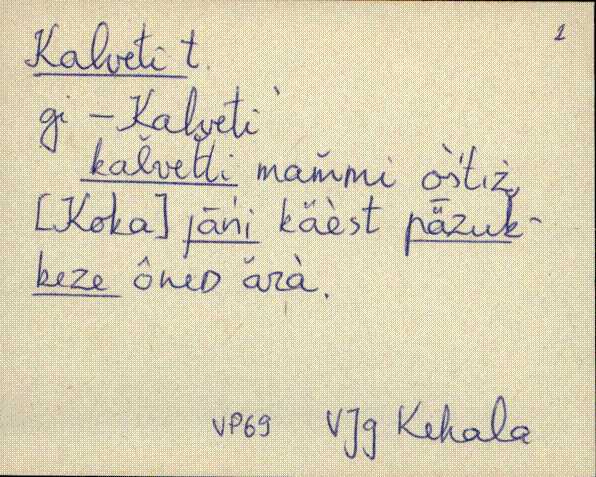 1
Kalveti t.
gi – Kalveti`
kal̆vet̆ti mam̆mi òśtiž,
[Koka] jāńi kăèst pǟzuk-
keze ôneᴅ ărà.
VP69 VJg Kehala